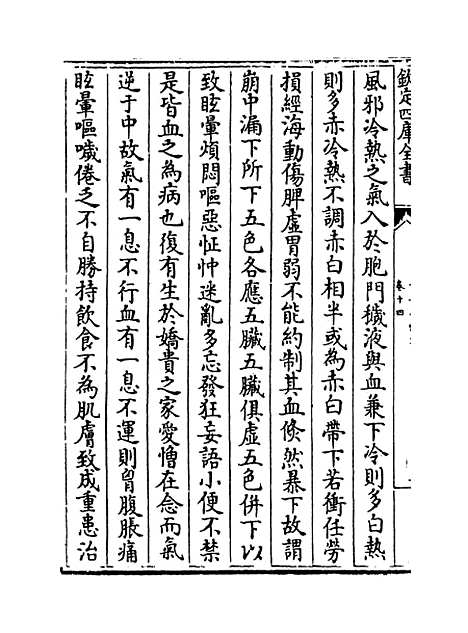 欽定四庫全書
卷十四
風邪冷熱之氣入於胞門穢液與血兼下冷則多白熱
則多赤冷熱不調赤白相半或為赤白帶下若衝任勞
損經海動傷脾虛胃弱不能約制其血倏然暴下故謂
崩中漏下所下五色各應五臟五臟俱虛五色併下以
致眩暈煩悶嘔惡怔忡迷亂多忘發狂妄語小便不禁
是皆血之為病也復有生於嬌貴之家愛憎在念而氣
逆于中故氣有一息不行血有一息不運則胷腹脹痛
眩暈嘔噦倦乏不自勝持飲食不為肌膚致成重患治